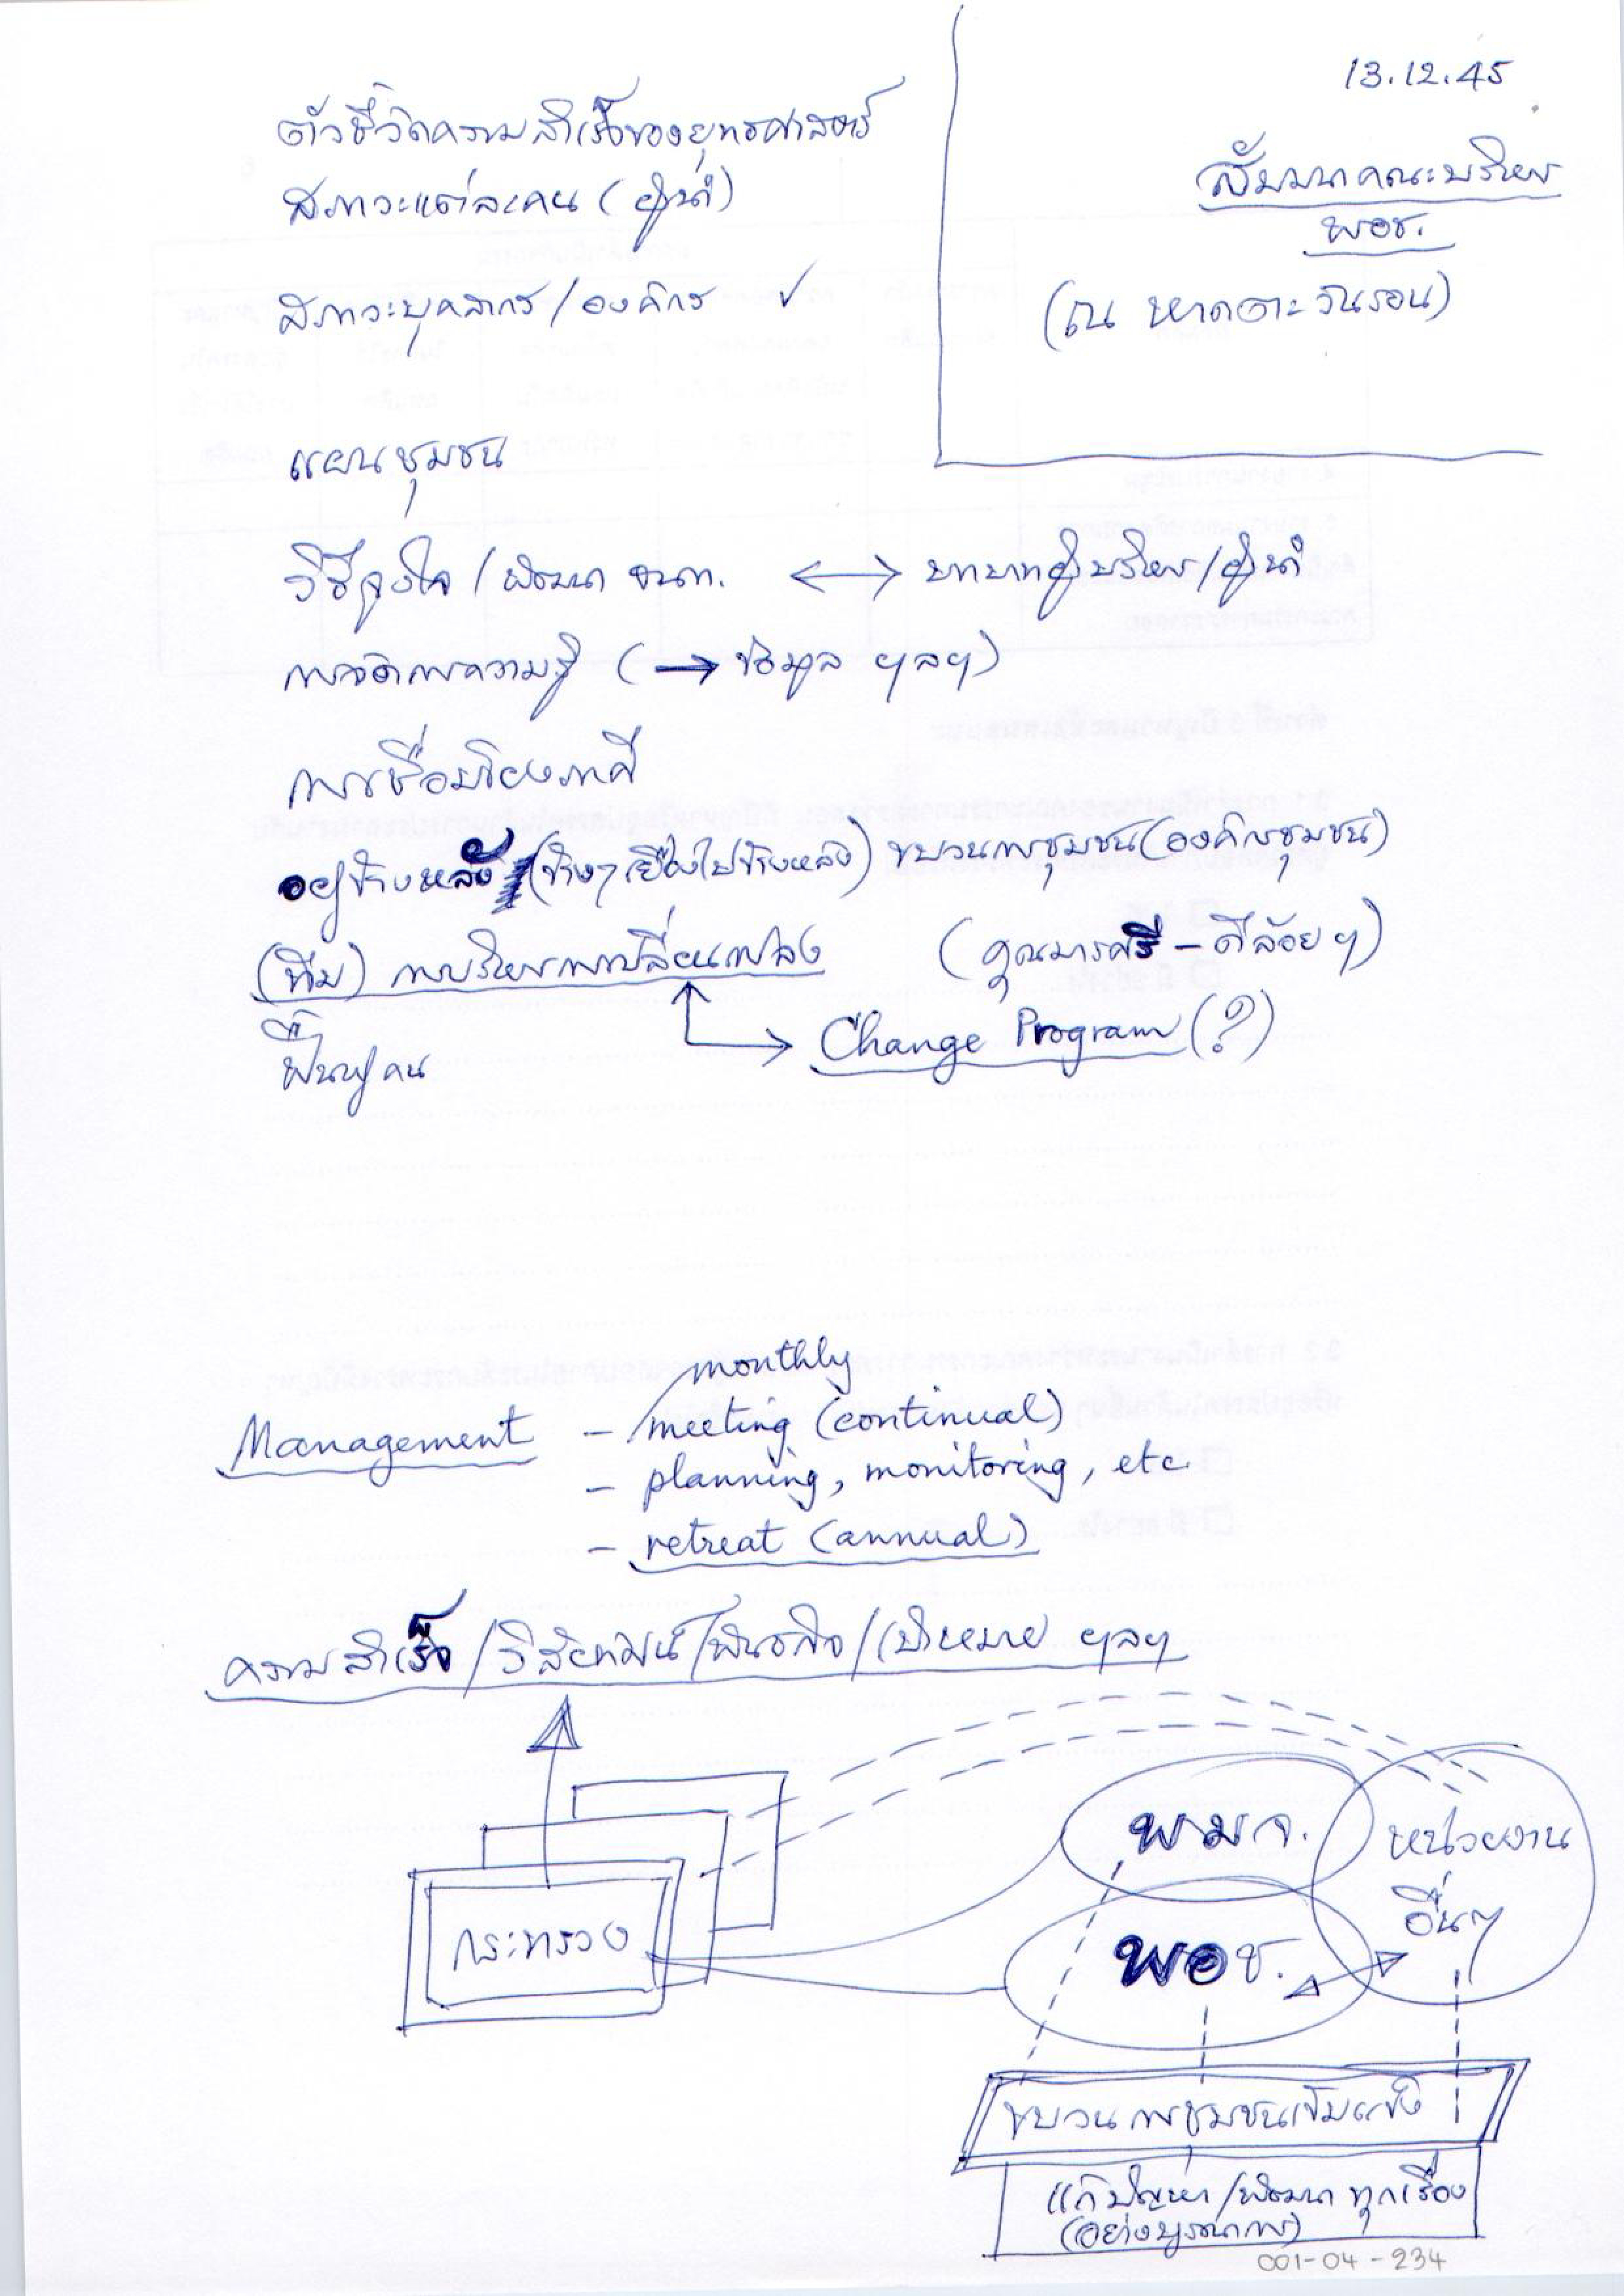 13.12.45
สัมมนาคณะบริหาร
พอช.
(ณ หาดตะวันรอน)
ตัวชี้วัดความสำเร็จของยุทธศาสตร์
สภาวะแต่ละคน (ผู้นำ)
สภาวะบุคลากร/องค์กร ✓
แผนชุมชน
วิธีจูงใจ/พัฒนา จนท. ⟷ บทบาทผู้บริหาร/ผู้นำ
การจัดการความรู้ (→ ข้อมูล ฯลฯ)
การเชื่อมโยงภาคี
อยู่ข้างหลัง (ข้างๆ เยื้องไปข้างหลัง) ขบวนการชุมชน (องค์กรชุมชน)
(ทีม) การบริหารการเปลี่ยนแปลง (คุณมารศรี – ดีล้อย ๆ)
→ Change Program (?)
ฟื้นฟูคน
monthly
Management – meeting (continual)
– planning, monitoring, etc
– retreat (annual)
ความสำเร็จ/วิสัยทัศน์/พันธกิจ/เป้าหมาย ฯลฯ
พมจ.
หน่วยงาน
อื่นๆ
กระทรวง
พอช.
ขบวนการชุมชนเข้มแข็ง
แก้ปัญหา/พัฒนา ทุกเรื่อง
(อย่างบูรณาการ)
001-04-234